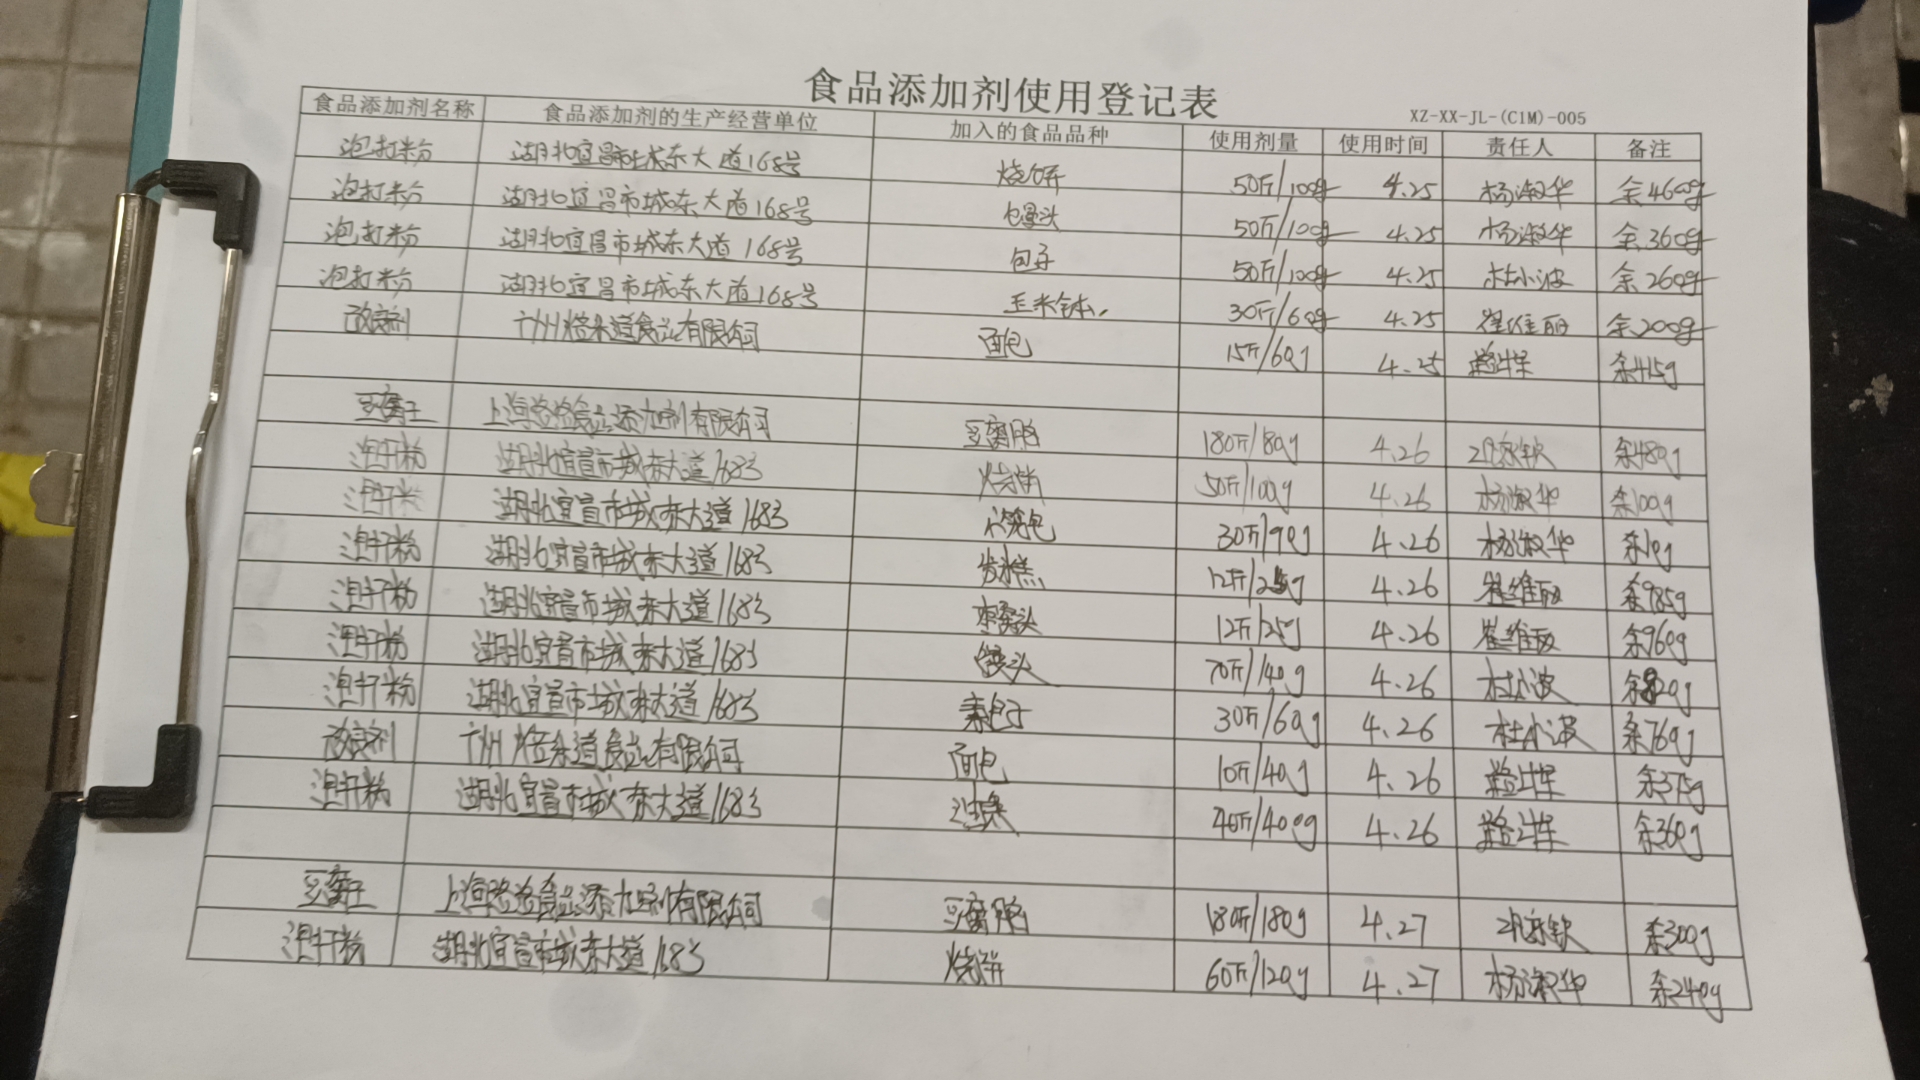 食品添加剂使用登记表
XZ-XX-JL-(C1M)-005
食品添加剂名称 食品添加剂的生产经营单位 加入的食品品种 使用剂量 使用时间 责任人 备注
泡打粉 湖北宜昌市城东大道168号 烧饼 50斤/100g 4.25 杨淑华 余460g
泡打粉 湖北宜昌市城东大道168号 50斤/100g 4.25 杨淑华 余360g
泡打粉 湖北宜昌市城东大道168号 包子 50斤/100g 4.25 杜小波 余260g
泡打粉 湖北宜昌市城东大道168号 玉米 30斤/60g 4.25 崔维丽 余200g
改良剂 广州焙乐道食品有限公司 面包 15斤/60g 4.25 余415g
豆腐王 食品添加剂有限公司 豆腐脑 180斤/180g 4.26 余480g
泡打粉 湖北宜昌市城东大道168号 烧饼 50斤/100g 4.26 杨淑华 余100g
泡打粉 湖北宜昌市城东大道168号 30斤/90g 4.26 杨淑华 余10g
泡打粉 湖北宜昌市城东大道168号 发糕 12斤/25g 4.26 崔维丽 余985g
泡打粉 湖北宜昌市城东大道168号 枣窝头 12斤/25g 4.26 崔维丽 余960g
泡打粉 湖北宜昌市城东大道168号 馒头 70斤/140g 4.26 杜小波 余820g
泡打粉 湖北宜昌市城东大道168号 素包子 30斤/60g 4.26 杜小波 余760g
改良剂 广州焙乐道食品有限公司 面包 10斤/40g 4.26 余375g
泡打粉 湖北宜昌市城东大道168号 40斤/400g 4.26 余360g
豆腐王 食品添加剂有限公司 豆腐脑 180斤/180g 4.27 余300g
泡打粉 湖北宜昌市城东大道168号 烧饼 60斤/120g 4.27 杨淑华 余240g